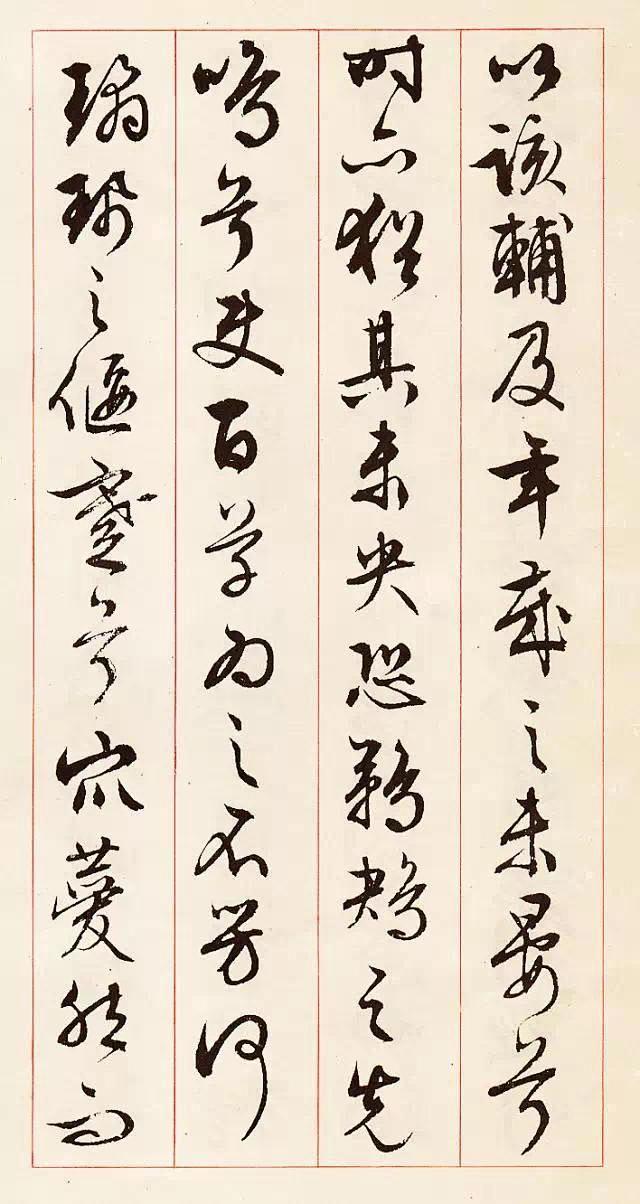 以該輔及年歲之未晏兮
时亦猶其未央恐鵜鴂之先
鳴兮使百草為之不芳何
瓊珮之偃蹇兮眾薆然而